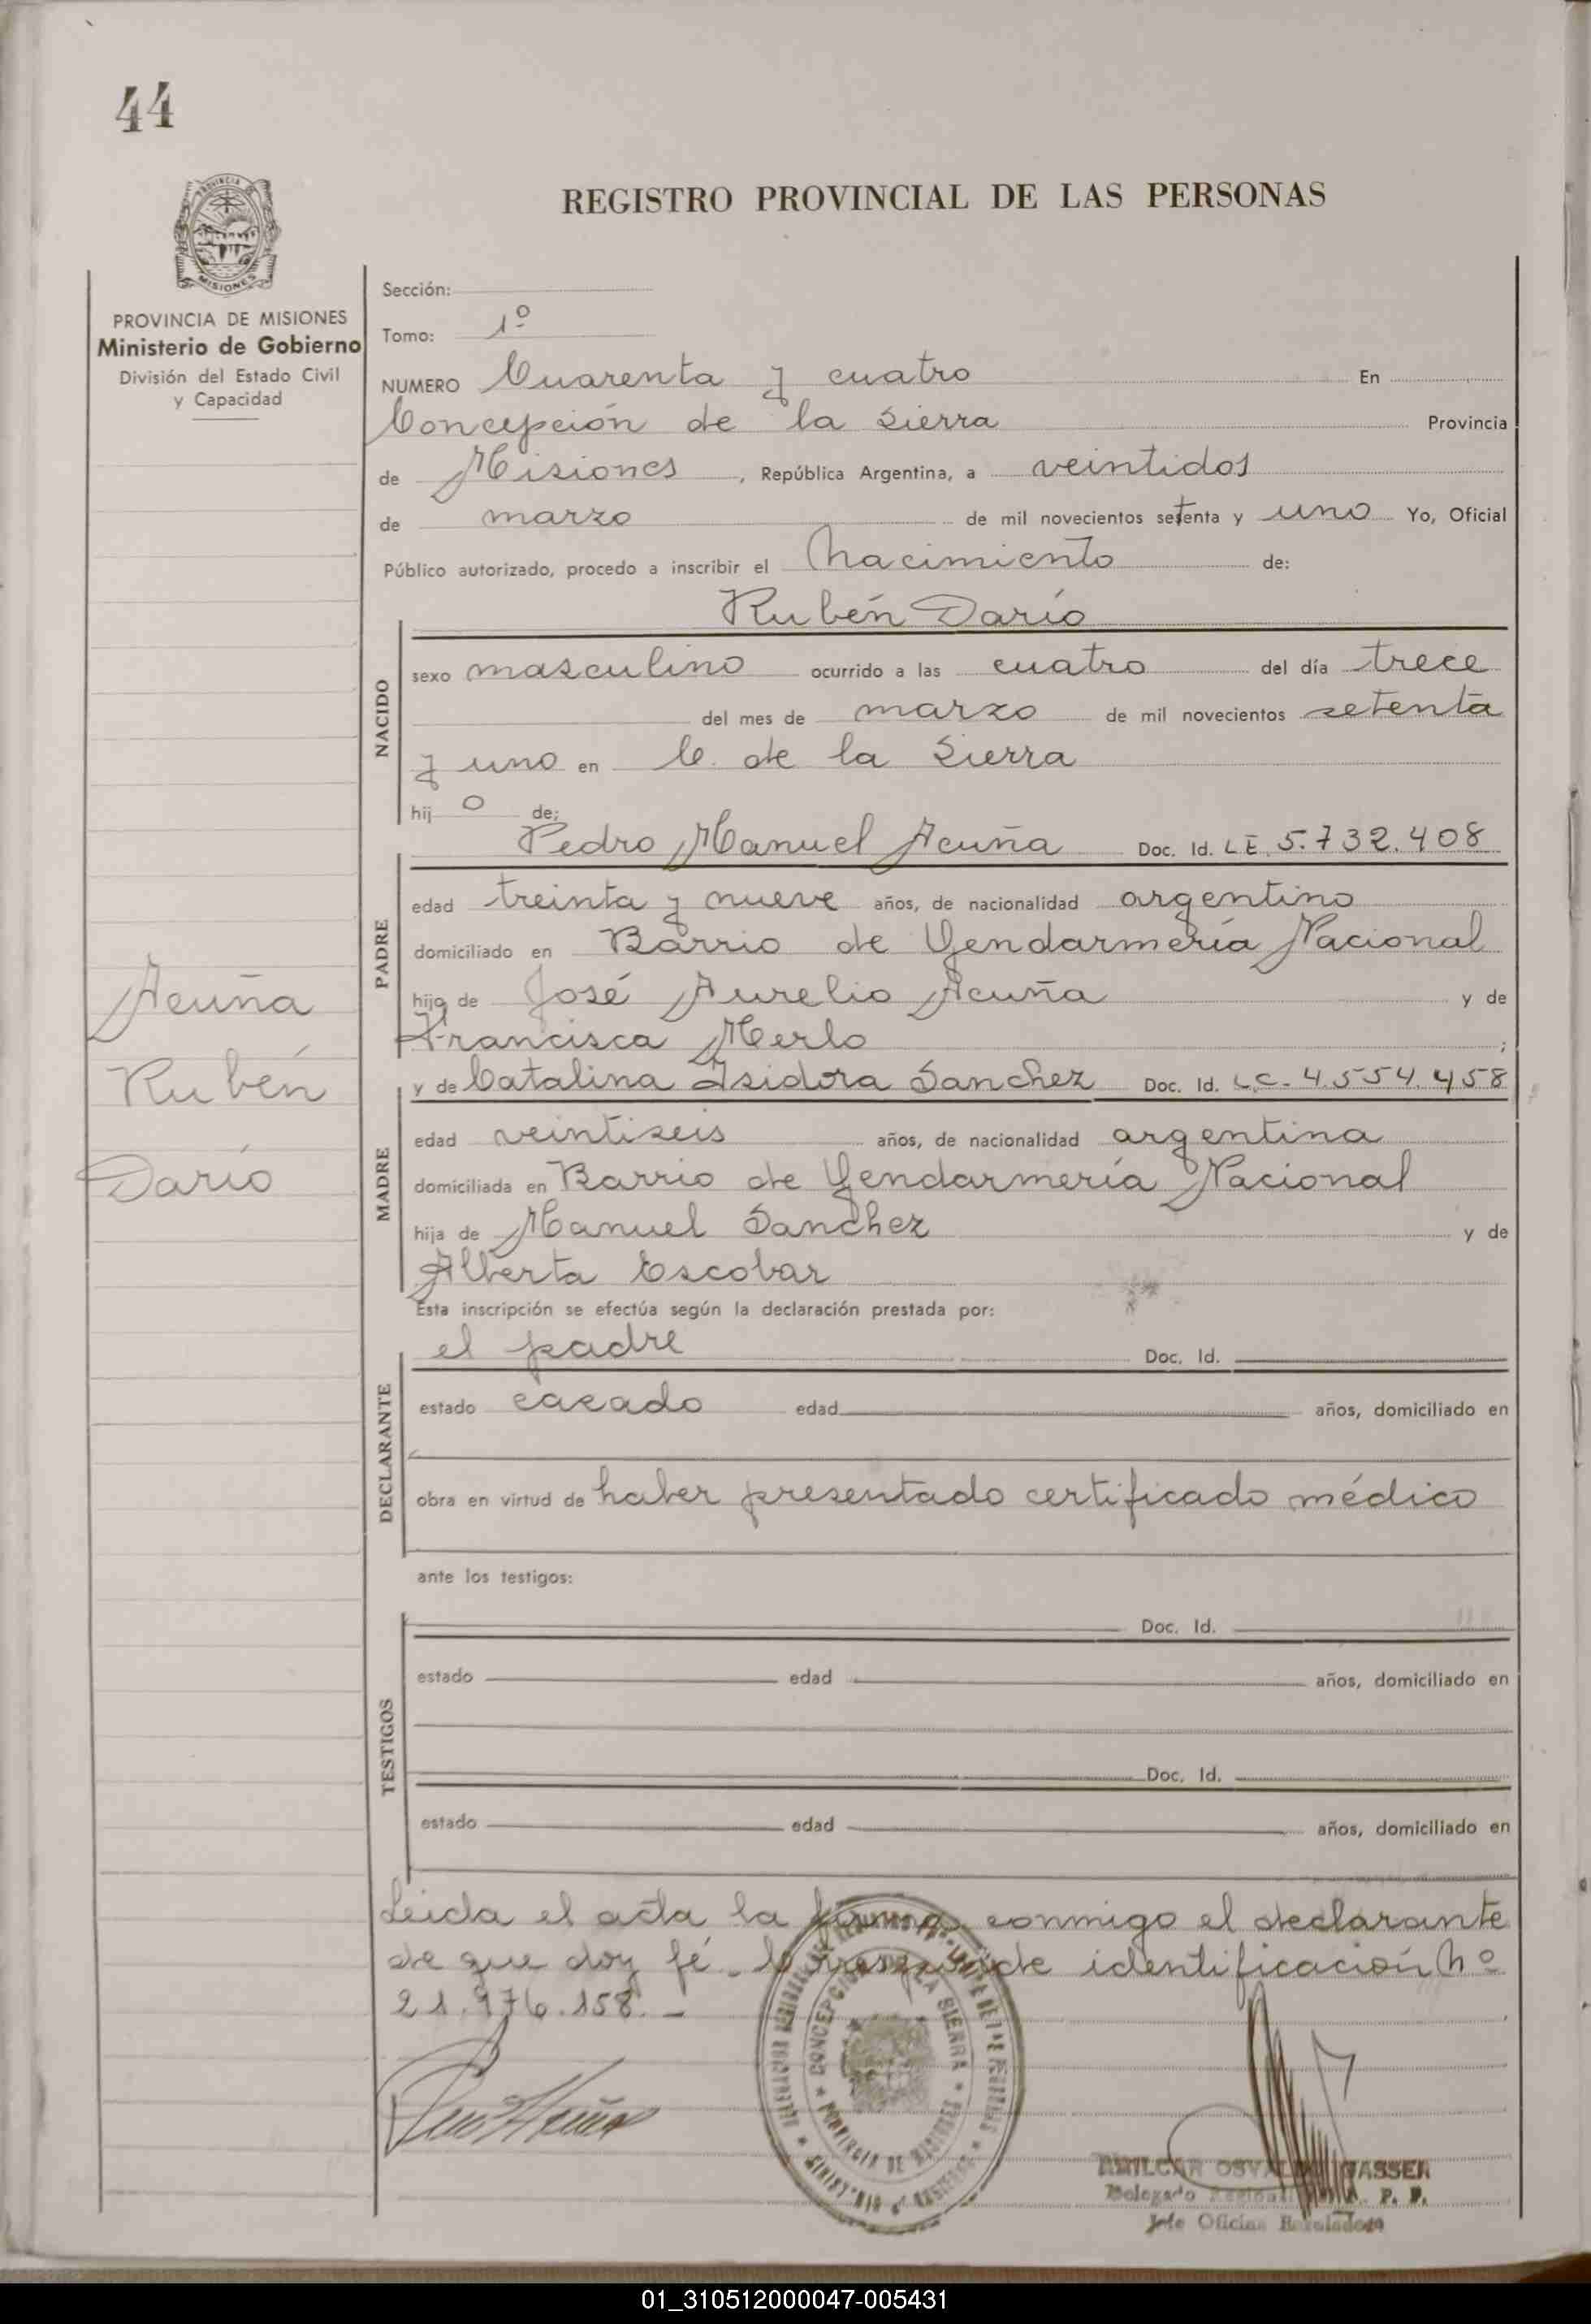 44
REGISTRO PROVINCIAL DE LAS PERSONAS
PROVINCIA DE MISIONES
Ministerio de Gobierno
División del Estado Civil
y Capacidad
Acuña
Rubén
Darío
Sección:
Tomo: 1º
NUMERO Cuarenta y cuatro En
Concepción de la Sierra Provincia
de Misiones, República Argentina, a veintidos
de marzo de mil novecientos setenta y uno Yo, Oficial
Público autorizado, procedo a inscribir el Nacimiento de:
Rubén Darío
NACIDO
sexo masculino ocurrido a las cuatro del día trece
del mes de marzo de mil novecientos setenta
y uno en C. de la Sierra
hij o de;
Pedro Manuel Acuña Doc. Id. LE 5.732.408
PADRE
edad treinta y nueve años, de nacionalidad argentino
domiciliado en Barrio de Gendarmería Nacional
hijo de José Aurelio Acuña y de
Francisca Merlo ;
y de Catalina Isidora Sanchez Doc. Id. L.C. 4.554.458
MADRE
edad veintiseis años, de nacionalidad argentina
domiciliada en Barrio de Gendarmería Nacional
hija de Manuel Sanchez y de
Alberta Escobar
Esta inscripción se efectúa según la declaración prestada por:
el padre Doc. Id.
DECLARANTE
estado casado edad años, domiciliado en
obra en virtud de haber presentado certificado médico
ante los testigos:
TESTIGOS
Doc. Id.
estado edad años, domiciliado en
Doc. Id.
estado edad años, domiciliado en
Leida el acta la firma conmigo el declarante
de que doy fé. Corresponde identificación Nº
21.976.158.-
CONCEPCION DE LA SIERRA
PROVINCIA DE MISIONES
AMILCAR OSVALDO
Delegado Regional R. P. P.
Jefe Oficina
01_310512000047-005431